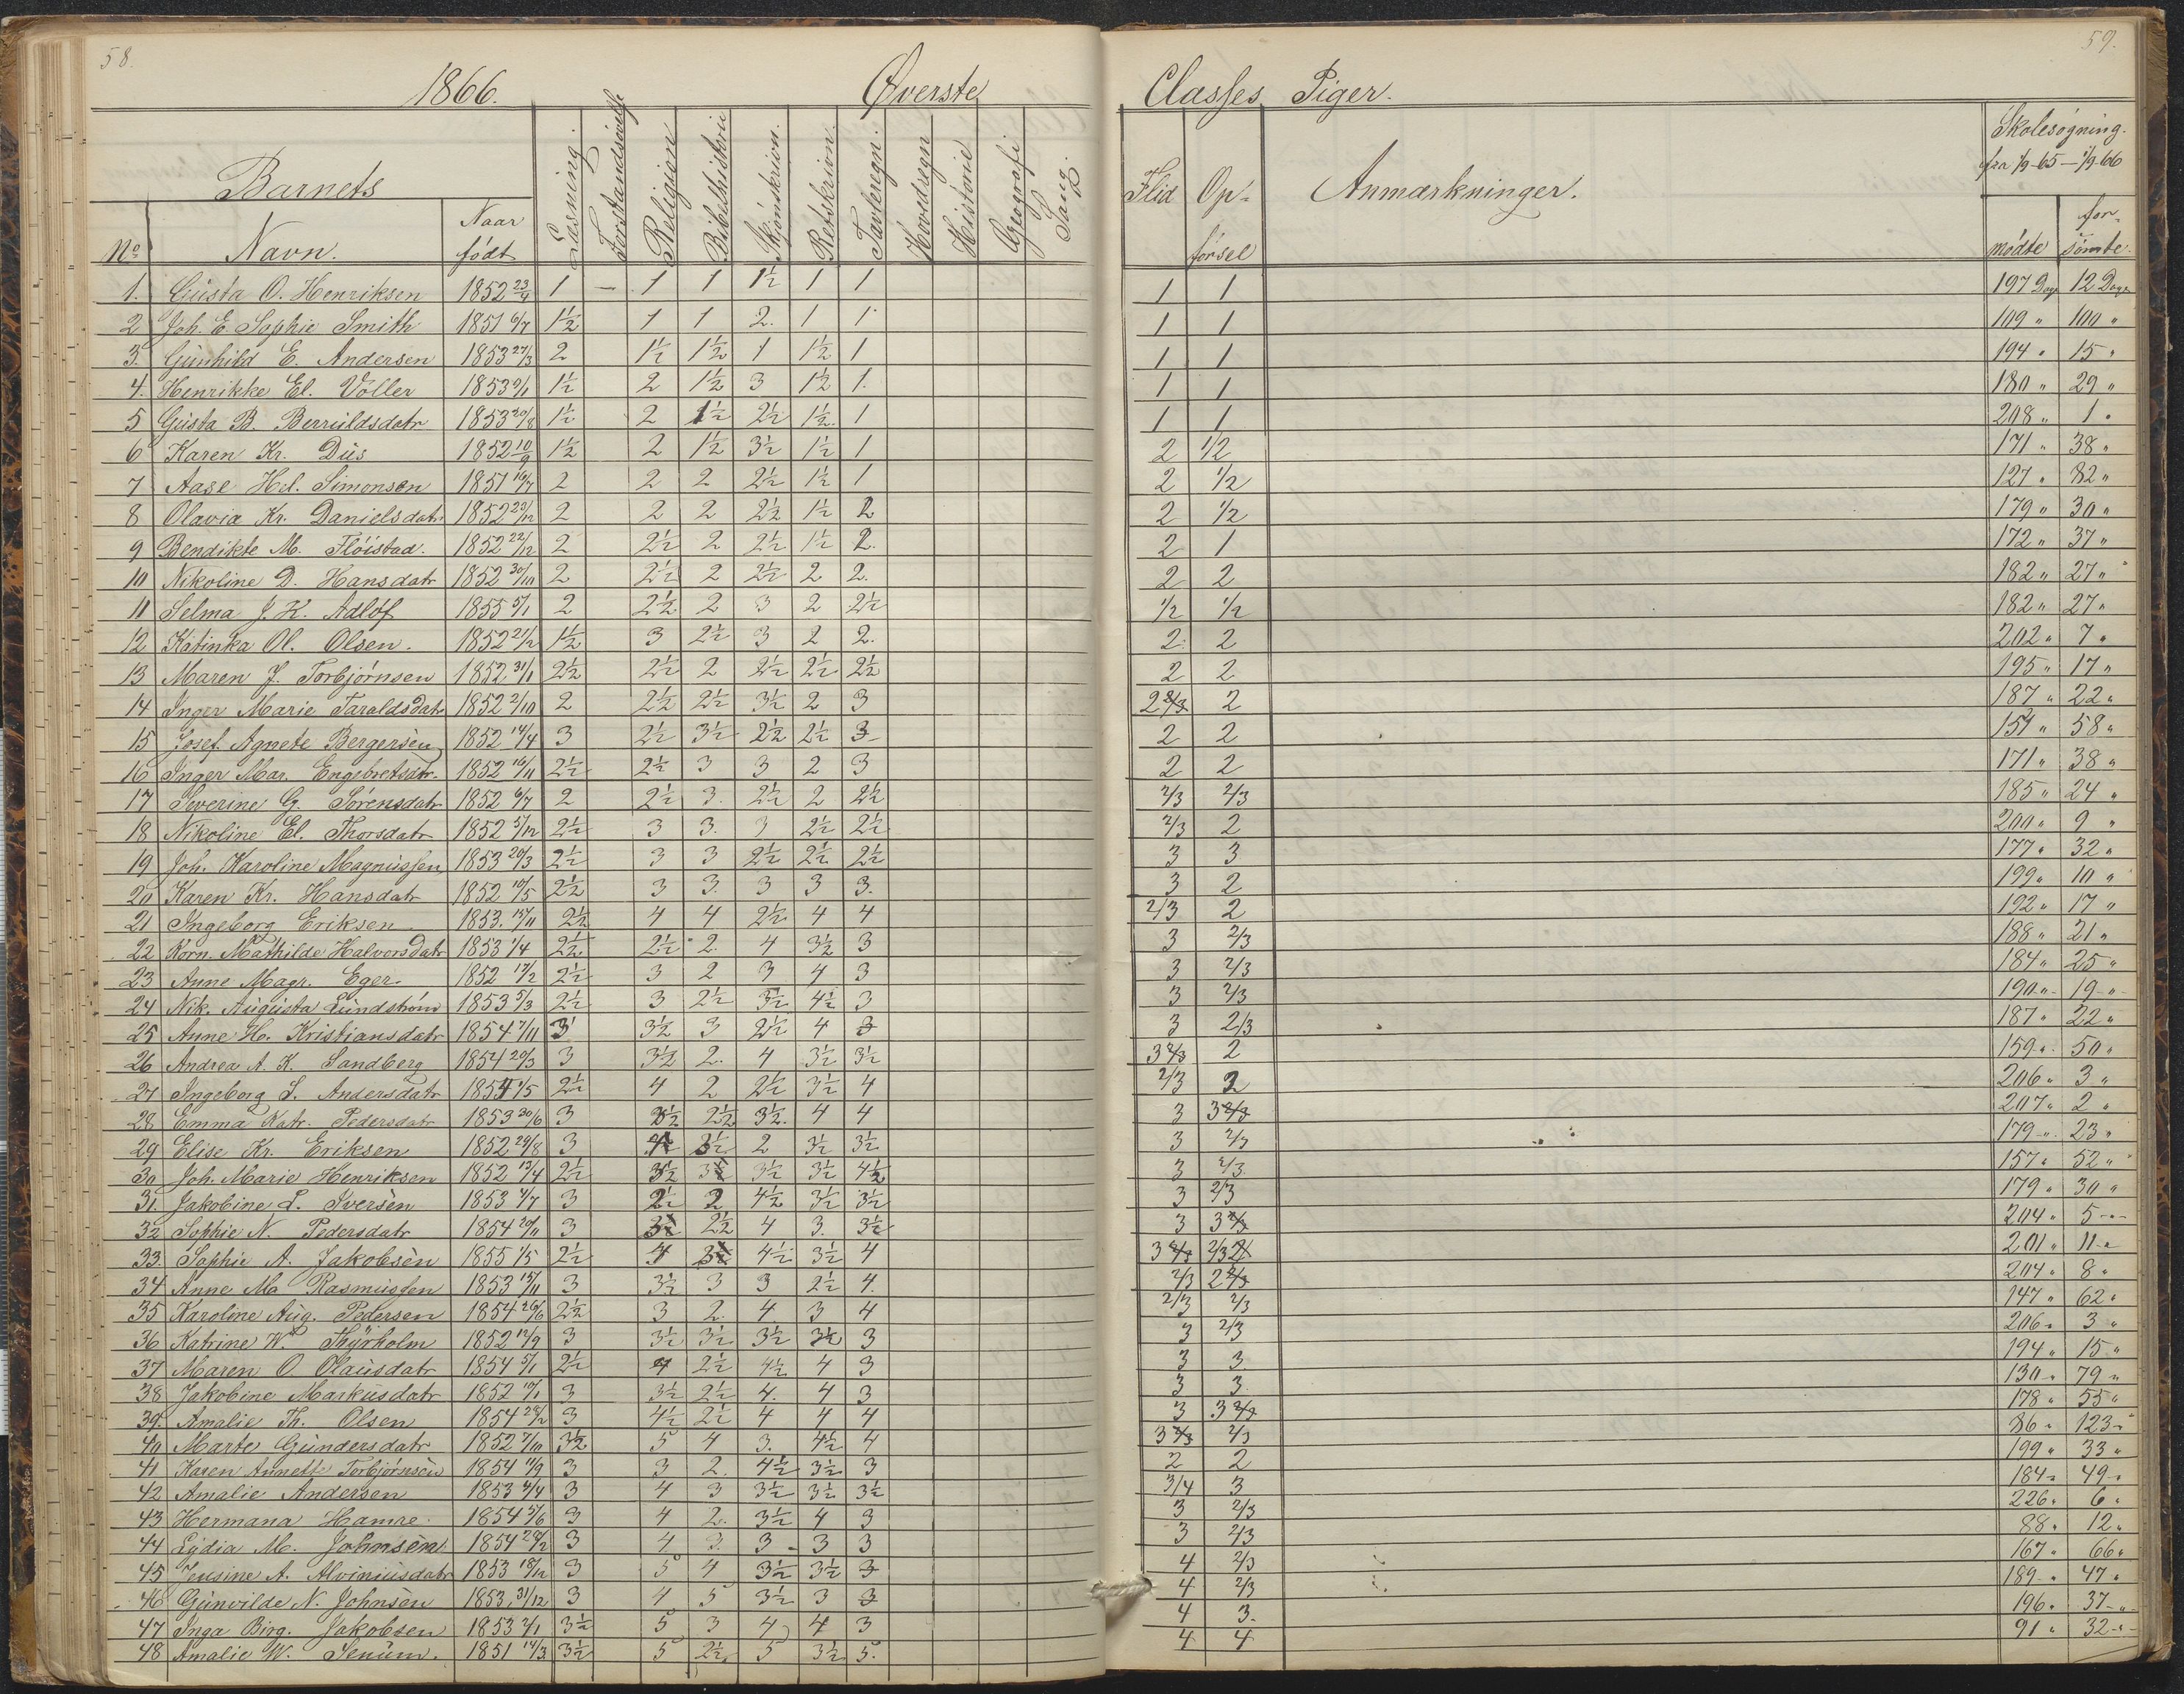 58.
1866.
Øverste
Barnets
No
Navn.
Naar født
Læsning.
Forstandsøvelse
Religion
Bibelhistorie
Skjönskrivn.
Retskrivn.
Tavleregn.
Hovedregn
Historie
Geografi
Sang.
1. Gusta O. Henriksen 1852 23/4 1 – 1 1 1½ 1 1
2 Joh. E. Sophie Smith 1851 6/7 1½ 1 1 2. 1 1
3. Gunhild E. Andersen 1853 27/3 2 1½ 1½ 1 1½ 1
4. Henrikke El. Voller 1853 1½ 2 1½ 3 1½ 1.
5 Gusta B. Berruldsdatr 1853 20/8 1½ 2 1½ 2½ 1½ 1
6 Karen Kr. Dus 1852 10/9 1½ 2 1½ 3½ 1½ 1
7 Aase Hel. Simonsen 1851 16/7 2 2 2 2½ 1½ 1
8 Olavia Kr. Danielsdatr 1852 23/12 2 2 2 2½ 1½ 2
9 Bendikte M. Flöistad. 1852 22/12 2 2½ 2 2½ 1½ 2.
10 Nikoline D. Hansdatr 1852 30/10 2 2½ 2 2½ 2 2.
11 Selma J. K. Adlöf 1855 5/1 2 2½ 2 3 2 2½
12 Katinka Ol. Olsen. 1852 21/12 1½ 3 2½ 3 2 2.
13 Maren J. Torbjörnsen 1852 31/1 2½ 2½ 2 2½ 2½ 2½
14 Inger Marie Taraldsdatr 1852 2/10 2 2½ 2½ 3½ 2 3
15 Josef. Agnete Bergersen 1852 14/4 3 2½ 3½ 2½ 2½ 3
16 Inger Mar. Engebretsdtr. 1852 16/11 2½ 2½ 3 3 2 3
17 Severine G. Sörensdatr 1852 6/7 2 2½ 3. 2½ 2 2½
18 Nikoline El. Thorsdatr 1852 5/12 2½ 3 3. 3 2½ 2½
19 Joh. Karoline Magnussen 1853 20/3 2½ 3 3 2½ 2½ 2½
20 Karen Kr. Hansdatr 1852 10/5 2½ 3 3. 3 3 3.
21 Ingeborg Eriksen 1853. 13/11 2½ 4 4 2½ 4 4
22 Korn. Mathilde Halvorsdatr 1853 1/4 2½ 2½ 2. 4 3½ 3
23 Anne Magr. Eger. 1852 17/2 2½ 3 2 3 4 3
24 Nik. Augusta Lundström 1853 5/3 2½ 3 2½ 3½ 4½ 3
25 Anne H. Kristiansdatr 1854 7/11 3 3½ 3 2½ 4 3
26 Andrea A. K. Sandberg 1854 20/3 3 3½ 2. 4 3½ 3½
27 Ingeborg S. Andersdatr 1854 1/5 2½ 4 2 2½ 3½ 4
28 Emma Katr. Pedersdatr 1853 30/6 3 2½ 3½. 4 4
29 Elise Kr. Eriksen 1852 29/8 3 2 3½ 3½
30 Joh. Marie Henriksen 1852 13/4 2½ 3½ 3½ 3½ 4½
31. Jakobine L. Iversen 1853 4/7 3 2½ 2 4½ 3½ 3½
32 Sophie N. Pedersdatr 1854 20/11 3 2½ 4 3. 3½
33. Sophie A. Jakobsen 1855 1/5 2½ 4 4½ 3½ 4
34 Anne Ma Rasmussen 1853 15/11 3 3½ 3 3 2½ 4.
35 Karoline Aug. Pedersen 1854 26/6 2½ 3 2. 4 3 4
36 Katrine W. Thyrholm 1852 12/9 3 3½ 3½ 3½ 3½ 3
37 Maren O. Olausdatr 1854 5/1 2½ 4 2½ 4½ 4 3
38 Jakobine Markusdatr 1852 17/1 3 3½ 2½ 4. 4 3
39. Amalie Th. Olsen 1854 28/2 3 4½ 2½ 4 4 4
40 Marte Gundersdatr 1852 7/10 3½ 5 4 3. 4½ 4
41 Karen Annette Torbjörnsen 1854 11/9 3 3 2. 4½ 3½ 3
42 Amalie Andersen 1853 4/4 3 4 3 3½ 3½ 3½
43 Hermana Hamre. 1854 5/6 3 4 2. 3½ 4 3
44 Lydia M. Johnsen 1854 28/2 3 4 3. 3 3 3
45 Jensine A. Alviniusdatr 1853 18/12 3 5 4 3½ 3½ 3
46 Gunvilde N. Johnsen 1853, 31/12 3 4 5 3½ 3 3
47 Inga Birg. Jakobsen 1853 2/1 3½ 5 3 4 4 3
48 Amalie W. Senum. 1851 14/3 3½ 5 2½ 5 3½ 5.
59.
Classes Piger.
Flid
Opförsel
Anmærkninger.
Skolesögning.
fra 1/9-65 – 1/9-66
mödte
forsömte.
1 1 197 Dage 12 Dage
1 1 109 " 100 "
1 1 194 " 15 "
1 1 180 " 29 "
1 1 208 " 1 "
2 1/2 171 " 38 "
2 1/2 127 " 82 "
2 1/2 179 " 30 "
2 1 172 " 37 "
2 2 182 " 27 "
1/2 1/2 182 " 27 "
2 2 202 " 7 "
2 2 195 " 17 "
2 2/3 2 187 " 22 "
2 2 58 "
2 2 171 " 38 "
2/3 2/3 185 " 24 "
2/3 2 200 " 9 "
3 3 177 " 32 "
3 2 199 " 10 "
2/3 2 192 " 17 "
3 2/3 188 " 21 "
3 2/3 184 " 25 "
3 2/3 190 " 19 "
3 2/3 187 " 22 "
3 2/3 2 159 " 50 "
2/3 2 206 " 3 "
3 3 2/3 207 " 2 "
3 2/3 179 " 23 "
3 2/3. 157 " 52 "
3 2/3 179 " 30 "
3 3 2/3 204 " 5 "
3 2/3 2/3 201 " 11 "
2/3 2 2/3 204 " 8 "
2/3 2/3 147 " 62 "
3 2/3 206 " 3 "
3 3. 194 " 15 "
3 3. 130 " 79 "
3 3 2/3 178 " 55 "
3 2/3 2/3 86 " 123 "
2 2 199 " 33 "
3/4 3 184 " 49 "
3 2/3 226 " 6 "
3 2/3 88 " 12 "
4 2/3 167 " 66 "
4 2/3 189 " 47 "
4 3. 196 " 37 "
4 4 91 " 32 "